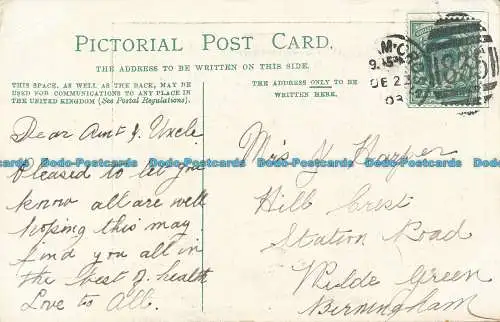 PICTORIAL POST CARD.
THE ADDRESS TO BE WRITTEN ON THIS SIDE.
THIS SPACE, AS WELL AS THE BACK, MAY BE
USED FOR COMMUNICATIONS TO ANY PLACE IN
THE UNITED KINGDOM (See Postal Regulations).
THE ADDRESS ONLY TO BE
WRITTEN HERE.
Dear Aunt & Uncle
Pleased to let you
know all are well
hoping this may
find you all in
the best of health
Love to All.
Mrs Y Harper
Hill Crest
Station Road
Wilde Green
Birmingham
DE 23
03
Dodo-Postcards Dodo-Postcards Dodo-Postcards Dodo-Postcards Dodo-Postcards